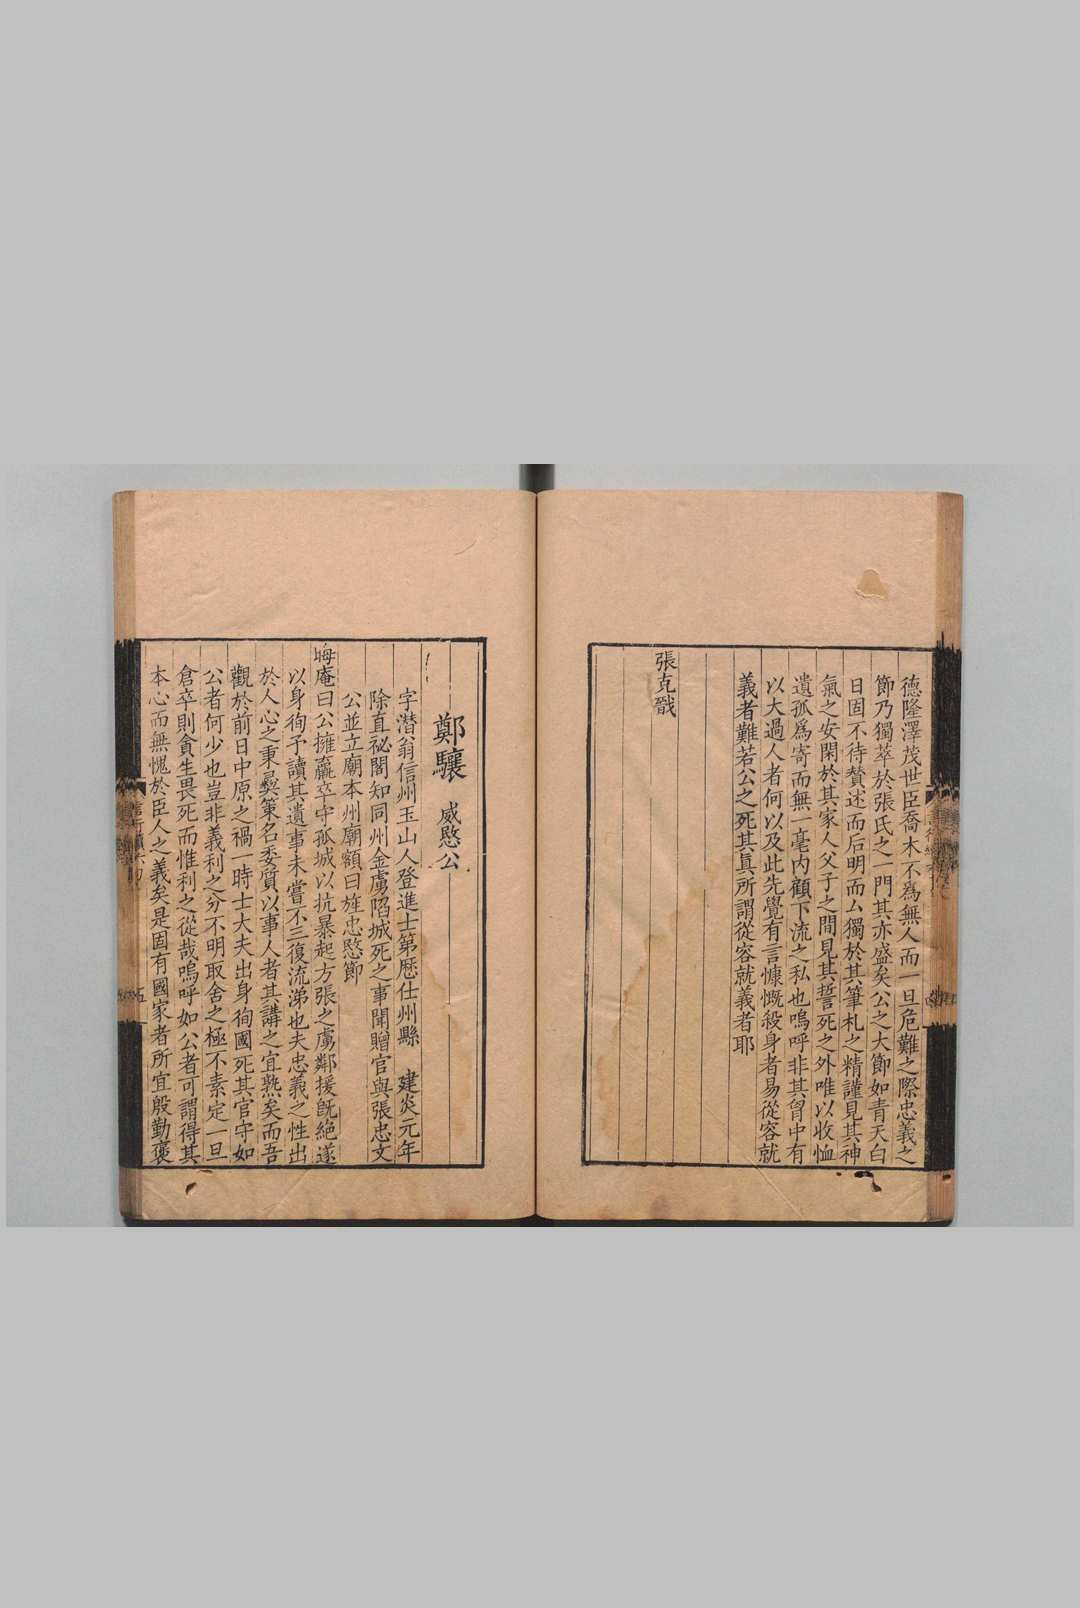 德隆澤茂世臣喬木不為無人而一旦危難之際忠義之
節乃獨萃於張氏之一門其亦盛矣公之大節如青天白
日固不待賛述而后明而厶獨於其筆札之精謹見其神
氣之安閑於其家人父子之間見其誓死之外唯以收恤
遺孤爲寄而無一毫内顧下流之私也嗚呼非其胷中有
以大過人者何以及此先覺有言慷慨殺身者易從容就
義者難若公之死其眞所謂從容就義者耶
張克戩
鄭驤 威愍公
字潛翁信州玉山人登進士第歷仕州縣 建炎元年
除直祕閣知同州金虜陷城死之事聞贈官與張忠文
公並立廟本州廟額曰旌忠愍節
晦庵曰公擁羸卒守孤城以抗暴起方張之虜鄰援旣絕遂
以身徇予讀其遺事未嘗不三復流涕也夫忠義之性出
於人心之秉彛策名委質以事人者其講之宜熟矣而吾
觀於前日中原之禍一時士大夫出身徇國死其官守如
公者何少也豈非義利之分不明取舍之極不素定一旦
倉卒則貪生畏死而惟利之從哉嗚呼如公者可謂得其
本心而無愧於臣人之義矣是固有國家者所宜殷勤褒
五